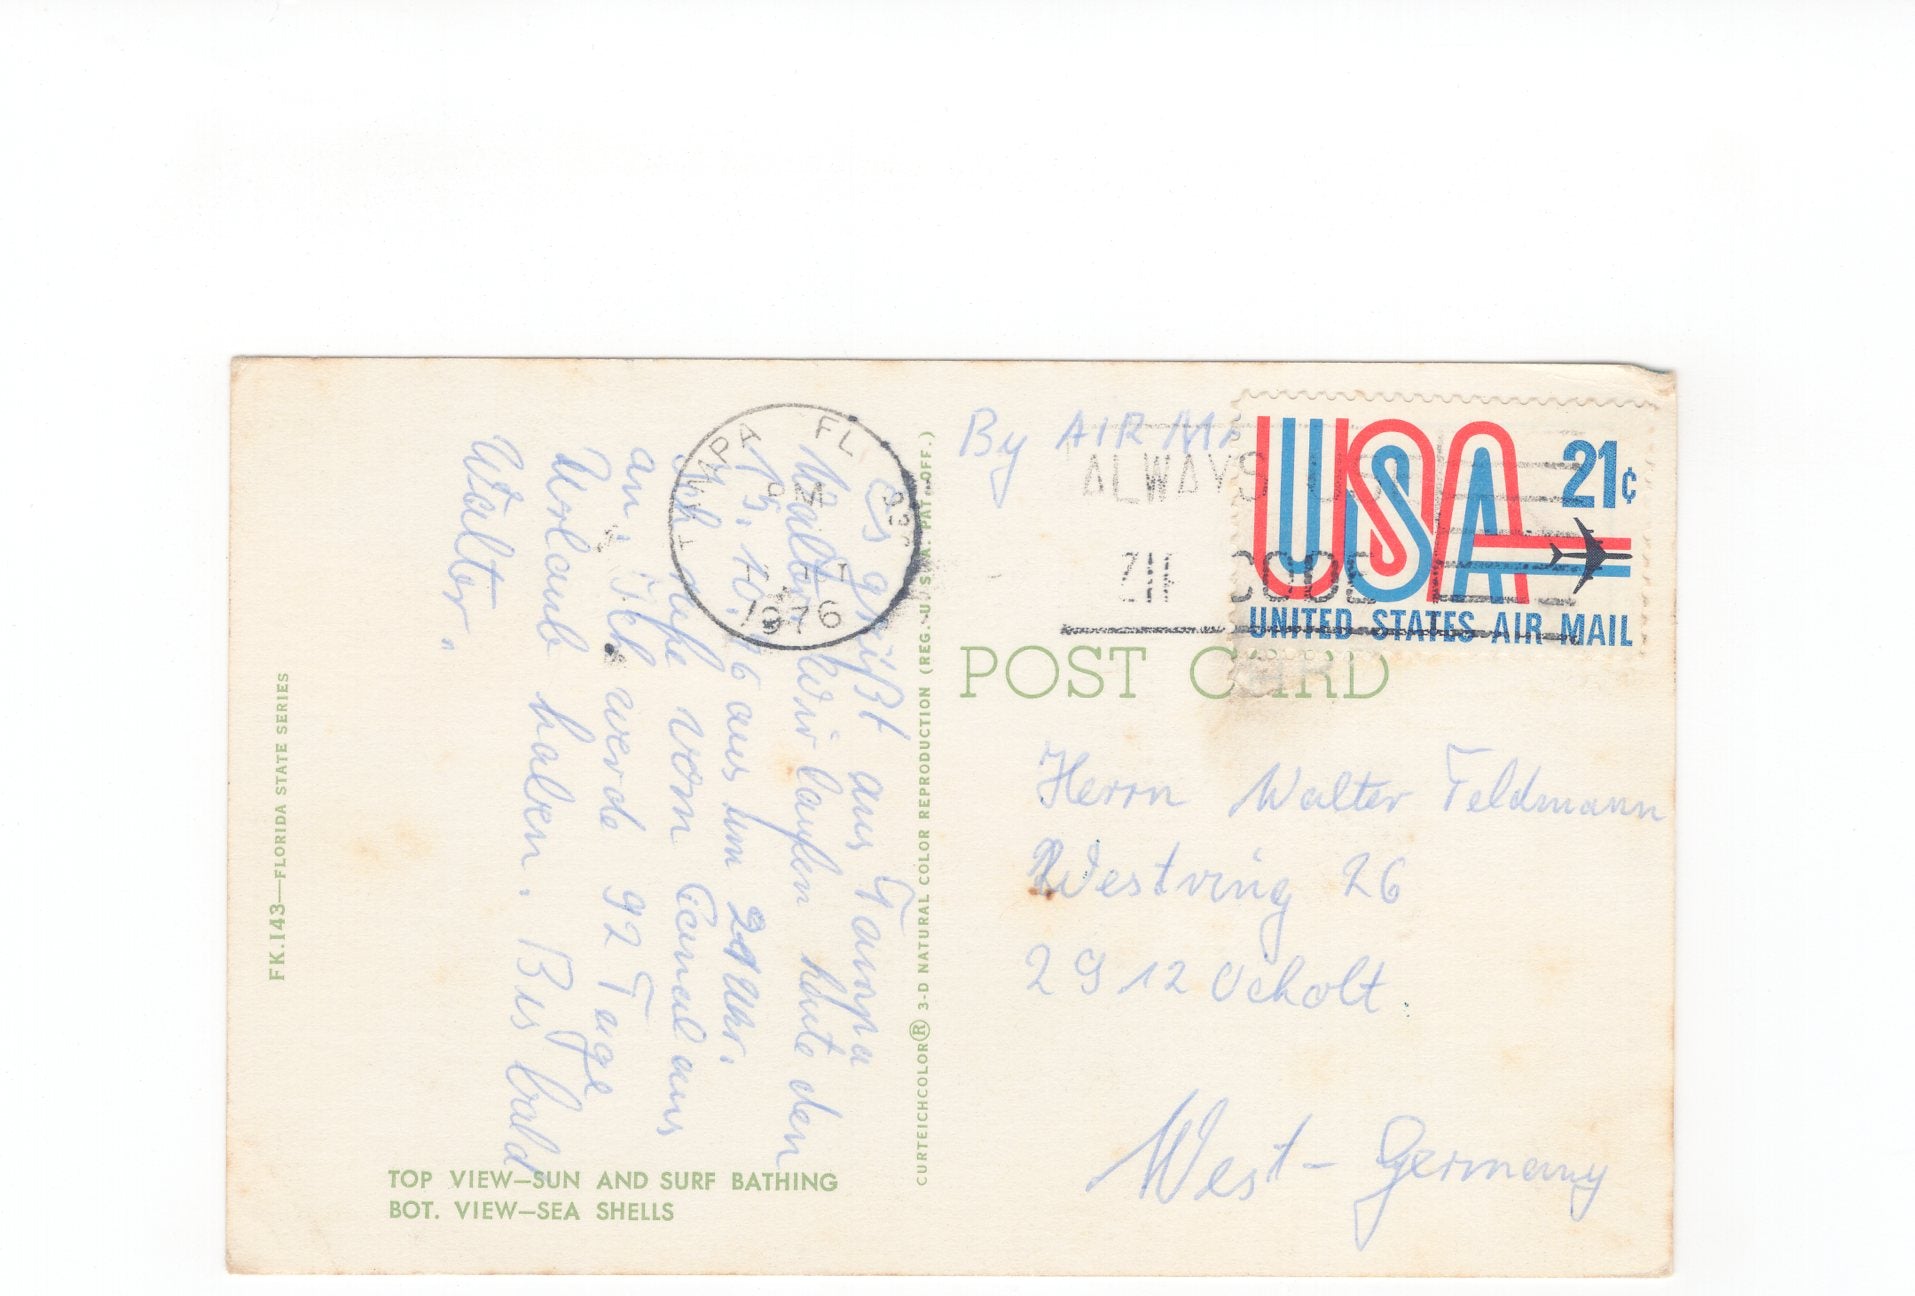 Es grüßt aus Tampa
Walter. Wir laufen heute den
15.10.76 aus um 21 Uhr.
Ich rufe vom Canal aus
an. Ich werde 92 Tage
Urlaub haben. Bis bald
Walter.
TAMPA FL
PM
1976
By AIR MA
ALWAYS US
ZIP CODE
USA 21¢
UNITED STATES AIR MAIL
POST CARD
Herrn Walter Feldmann
Westring 26
2912 Ocholt.
West-Germany
CURTEICHCOLOR® 3-D NATURAL COLOR REPRODUCTION (REG. U.S.A. PAT. OFF.)
FK.143—FLORIDA STATE SERIES
TOP VIEW—SUN AND SURF BATHING
BOT. VIEW—SEA SHELLS